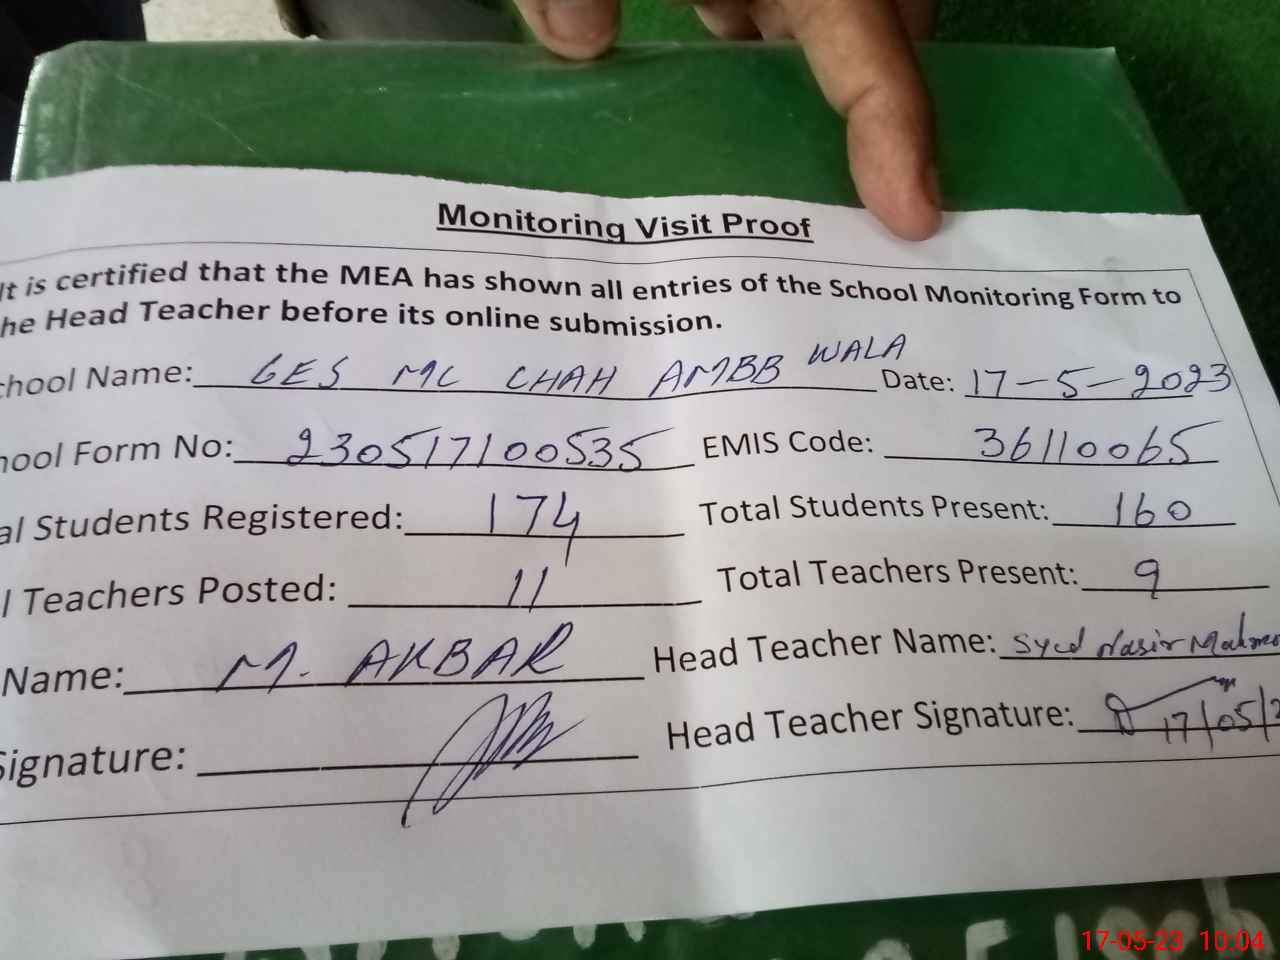 Monitoring Visit Proof
It is certified that the MEA has shown all entries of the School Monitoring Form to
he Head Teacher before its online submission.
chool Name: GES MC CHAH AMBB WALA Date: 17-5-2023
hool Form No: 230517100535 EMIS Code: 36110065
al Students Registered: 174 Total Students Present: 160
l Teachers Posted: 11 Total Teachers Present: 9
Name: M. AKBAR Head Teacher Name: Syed Nasir
Signature: Head Teacher Signature: 17/05/2
17-05-23 10:04